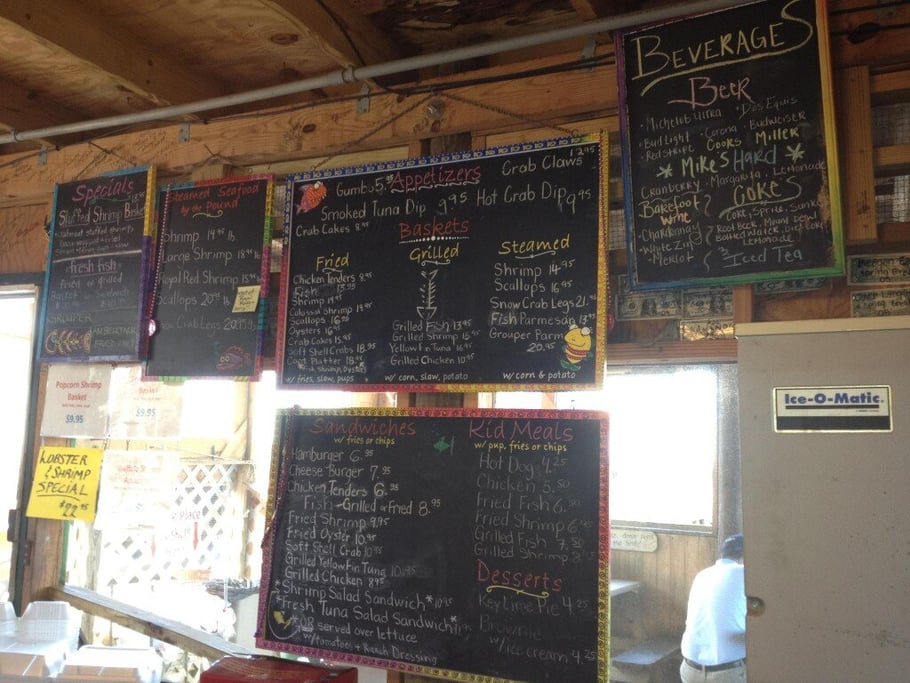 Specials
Stuffed Shrimp Basket
Fresh fish
fried or grilled
GROUPER
AMBERJACK
FRIED ONLY
Steamed Seafood
by the Pound
Shrimp 14.95 lb
Large Shrimp
Royal Red Shrimp
Scallops
Snow Crab Legs
Gumbo 5.95
Appetizers
Crab Claws 12.95
Smoked Tuna Dip 9.95
Hot Crab Dip 9.95
Crab Cakes 8.95
Baskets
Fried
Chicken Tenders 8.95
Fish 13.95
Shrimp 14.95
Colossal Shrimp 19.95
Scallops 16.95
Oysters 16.95
Crab Cakes 15.95
Soft Shell Crabs 18.95
Platter 18.95
Fish, Shrimp, Oysters
w/ fries, slaw, pups
Grilled
Grilled Fish 13.95
Grilled Shrimp 15.95
Yellow Fin Tuna 16.95
Grilled Chicken 10.95
w/ corn, slaw, potato
Steamed
Shrimp 14.95
Scallops 16.95
Snow Crab Legs 21.95
Fish Parmesan 13.95
Grouper Parm
20.95
w/ corn & potato
Beverages
Beer
Michelob Ultra · Dos Equis
Bud Light · Corona · Budweiser
Red Stripe Coors Miller
* Mike's Hard *
Cranberry · Margarita · Lemonade
Barefoot
Wine
Chardonnay
White Zin
Merlot
Cokes
Coke, Sprite, Sunkist
Root Beer, Mount. Dew
Bottled Water, Diet Coke
Lemonade
Iced Tea
Ice-O-Matic
Popcorn Shrimp
Basket
$9.95
Basket
$9.95
LOBSTER
& SHRIMP
SPECIAL
$22.95
Sandwiches
w/ fries or chips
Hamburger 6.95
Cheese Burger 7.95
Chicken Tenders 6.95
Fish - Grilled or Fried 8.95
Fried Shrimp 9.95
Fried Oyster 10.95
Soft Shell Crab 10.95
Grilled Yellow Fin Tuna 10.95
Grilled Chicken 8.95
*Shrimp Salad Sandwich* 10.95
*Fresh Tuna Salad Sandwich*
*OR served over lettuce
w/ tomatoes + Ranch Dressing
Kid Meals
w/ pup, fries or chips
Hot Dog 4.25
Chicken 5.50
Fried Fish 6.50
Fried Shrimp 6.95
Grilled Fish 7.50
Grilled Shrimp
Desserts
Key Lime Pie 4.25
Brownie
w/ ice cream 4.25